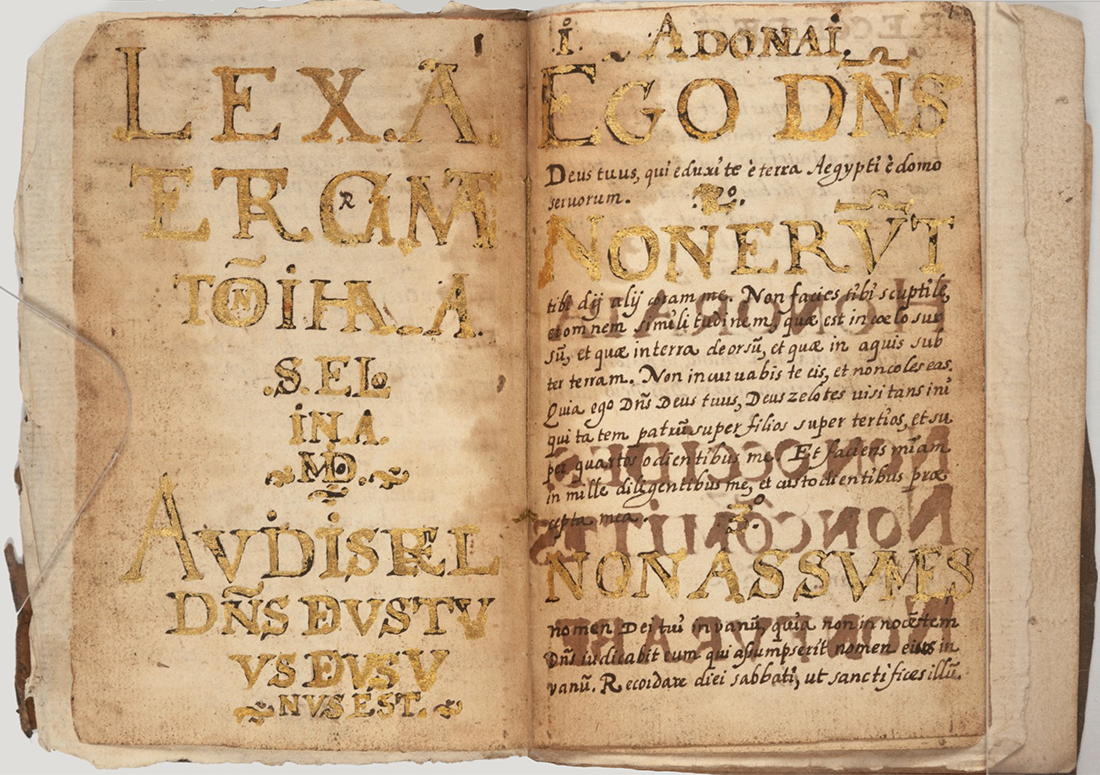 LEX.A.
S.EL
IN.A.
MD.
AVDI ISRAEL
DÑS DEVS TV
VS DEVS V
NVS EST.
I. ADONAI.
EGO DÑS
Deus tuus, qui eduxi te è terra Aegypti è domo
seruorum.
2º.
NON ERŨT
tibi dij alij coram me. Non facies tibi sculptile,
et omnem similitudinem, quæ est in cœlo sur
sũ, et quæ in terra deorsũ, et quæ in aquis sub
ter terram. Non incuruabis te eis, et non coles eas.
Quia ego Dñs Deus tuus, Deus zelotes visitans ini
quitatem patrũ super filios super tertios, et su
per quartos odientibus me. Et faciens miãm
in mille diligentibus me, et custodientibus præ
cepta mea.
3º.
NON ASSVMES
nomen Dei tui in vanũ, quia non in nocẽtem
Dñs iudicabit eum qui assumpserit nomen eius in
vanũ. Recordare diei sabbati, ut sanctifices illũ.